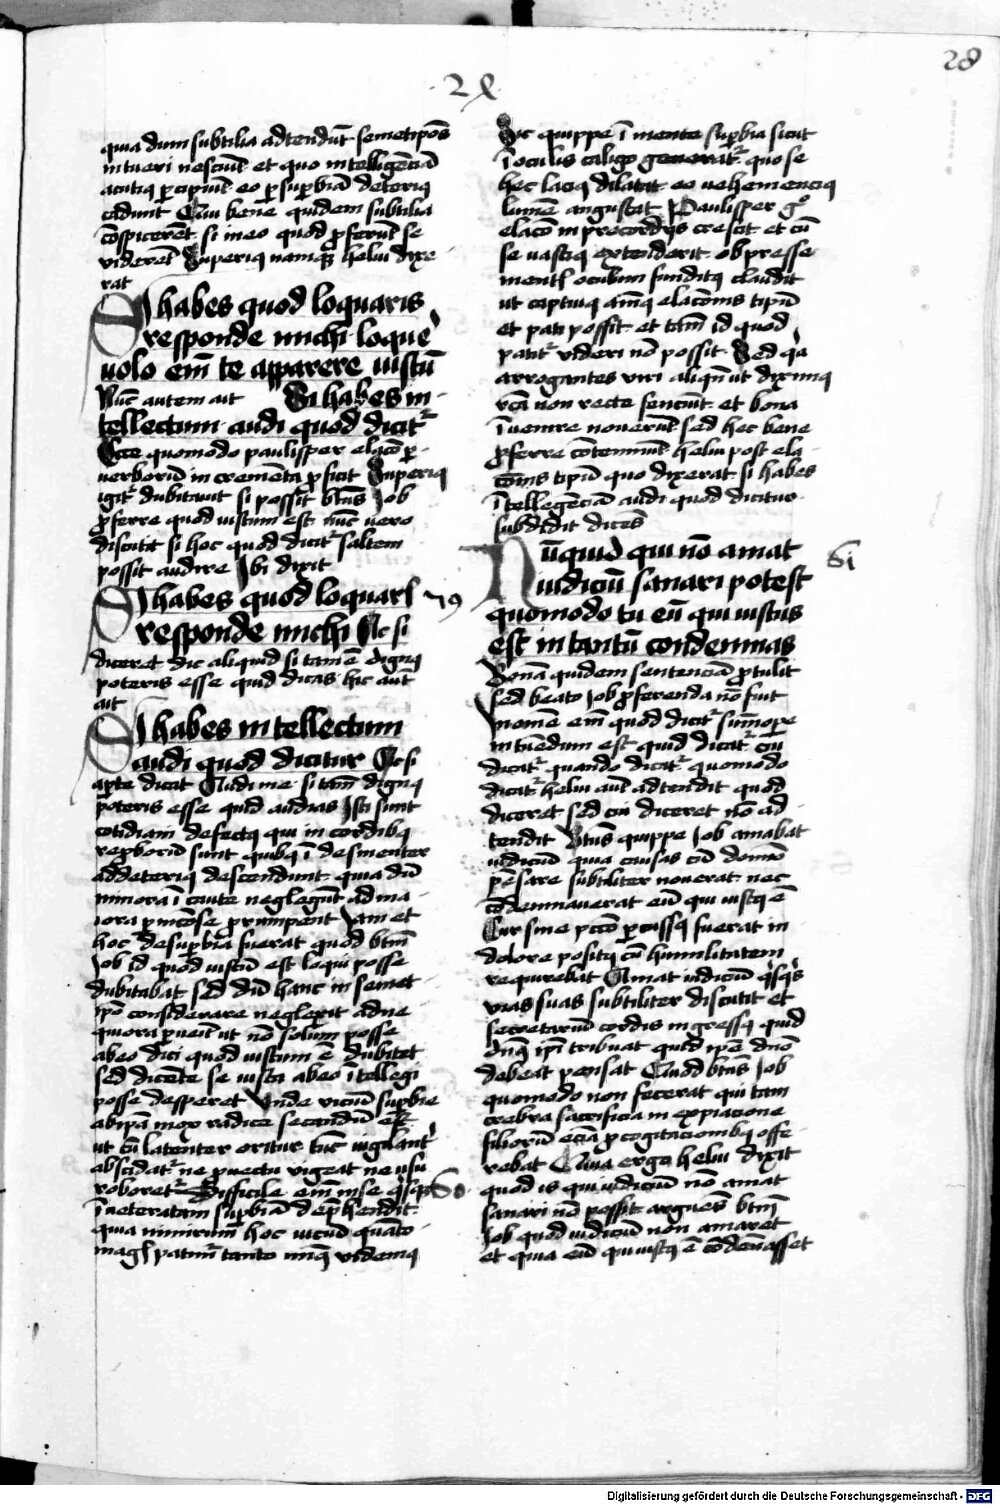 28
2 X
quia dum subtilia adtendūt semetip̄os
intueri nesciūt et quo intelligēciā
acutiꝰ ꝑcipiūt eo ꝑ suꝑbiā deteriꝰ
cadunt Qui bene quidem subtilia
cōspicerēt si in eo quod ꝓferūt se
viderēt Superiꝰ namqꝫ heliu dixe
rat
Si habes quod loquaris
responde michi loquē
volo em̄ te apparere iustū
Nūc autem ait Si habes in
tellectum audi quod dicit᷑
Ecce quomodo paulisper elacō ꝑ
verborū in cremēta ꝓficit Superiꝰ
igit᷑ dubitavit si possit bt̄us Job
ꝓferre quod iustum est nūc vero
discutit si hoc quod dicit᷑ saltem
possit audire Ibi dixit
Si habes quod loquar
responde michi Ac si
diceret dic aliquid si tamē dignꝰ
poteris esse quid dicas hic aut
ait
Si habes intellectum
audi quod dicitur Ac si
aꝑte dicat Audi me si tam̄ dignꝰ
poteris esse quid audias Isti sunt
cotidiani defectꝰ qui in cordibꝰ
reꝓborū sunt quibꝰ ī desinenter
ad deteriꝰ descendunt quia dū
minora ī caute neglegūt ad ma
iora ꝑnicōse ꝓrumpent Jam et
hoc de suꝑbia fuerat quod btm̄
Job id quod iustū est loqui posse
dubitabat sed dū hanc in semet
ip̄o considerare neglexit ad ne
quiora ꝑvenit ut nō solum posse
ab eo dici quod iustum ē dubitet
sed dicēte se iusta ab eo ītellegi
posse desperet Unde viciū suꝑbie
ab ip̄a mox radice secandū est
ut cū latenter oritur tūc vigilant᷑
abscidat᷑ ne ꝓvectu vigeat ne usu
roboret᷑ Difficile em̄ in se qͥsqꝫ
īveteratam suꝑbiā deꝓhendit
quia nimirum hoc viciū quāto
magis patim᷑ tanto minꝰ videmꝰ
Sic quippe ī mente suꝑbia sicut
ī oculis caligo generat᷑ quo se
hec laciꝰ dilatat eo vehemenciꝰ
lumē angustat Paulisper gͦ
elacō in precordijs crescit et cū
se vastiꝰ extenderit obpresse
mentis oculum funditꝰ claudit
ut captivꝰ animꝰ elacōnis tipū
et pati possit et tam̄ id quod
patit᷑ videri nō possit Sed qͥa
arrogantes viri aliqn̄ ut diximꝰ
vera non recte senciūt et bona
īvenire noverūt sed hec bene
ꝓferre cōtemnūt heliu post ela
cōnis tipū quo dixerat si habes
ītellegēciā audi quod dicitur
subdidit dicēs
Nūquid qui nō amat
iudiciū sanari potest
quomodo tu eū qui iustus
est in tantū condemnas
Bonā quidem sentenciā ꝓtulit
sed beato Job ꝓferenda nō fuit
In omē em̄ quod dicit᷑ sūmope
intuendum est quid dicat᷑ cui
dicat᷑ quando dicat᷑ quomodo
dicat᷑ heliu aut adtendit quod
diceret sed cui diceret nō ad
tendit Bt̄us quippe Job amabat
iudiciū quia causas cū domīo
pēsare subtiliter noverat nec
cōdemnaverat eū qui iustꝰ ē
Cur sine pctō ꝑcussꝰ fuerat in
dolore positꝰ cū humilitatem
requirebat Amat iudiciū qͥsqͥs
vias suas subtiliter discutit et
secretariū cordis ingressꝰ quid
dn̄s ip̄i tribuat quid ip̄e dn̄o
debeat pensat Quod bt̄us Job
quomodo non fecerat qui tam
crebra sacrificia in expiacione
filiorū eciā ꝓ cogitacionibꝰ offe
rebat Quia ergo heliu dixit
quod is qui iudiciū nō amat
sanari nō possit arguens btm̄
Job quod iudiciū non amaret
et quia eū qui iustꝰ ē cōdēnasset
79
60
61
Digitalisierung gefördert durch die Deutsche Forschungsgemeinschaft - DFG